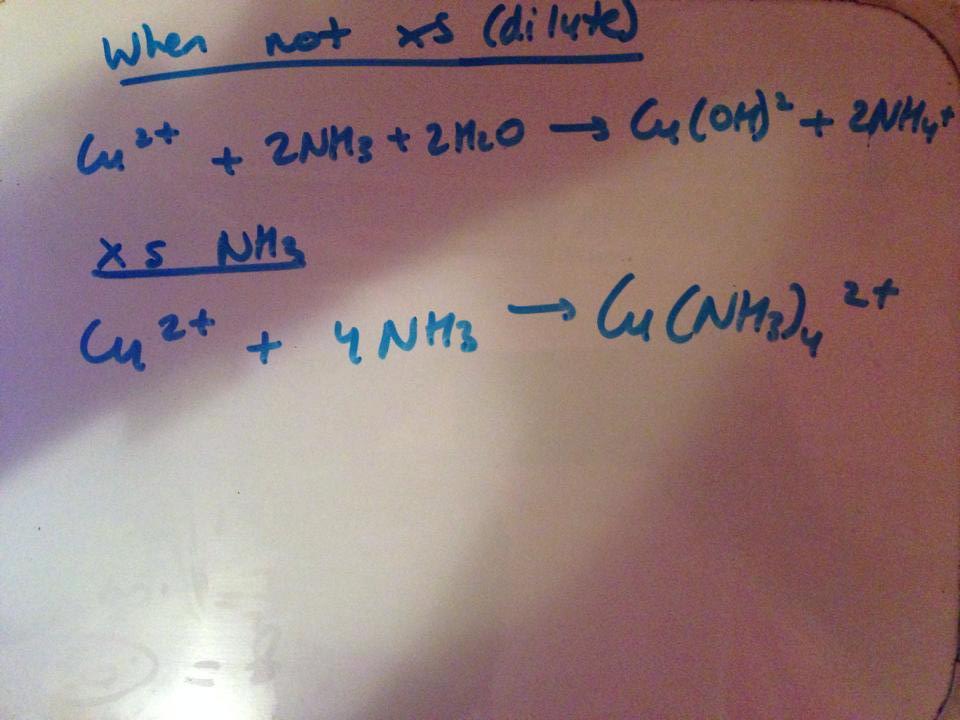 When not xs (dilute)
Cu²⁺ + 2NH₃ + 2H₂O → Cu(OH)² + 2NH₄⁺
xs NH₃
Cu²⁺ + 4NH₃ → Cu(NH₃)₄²⁺